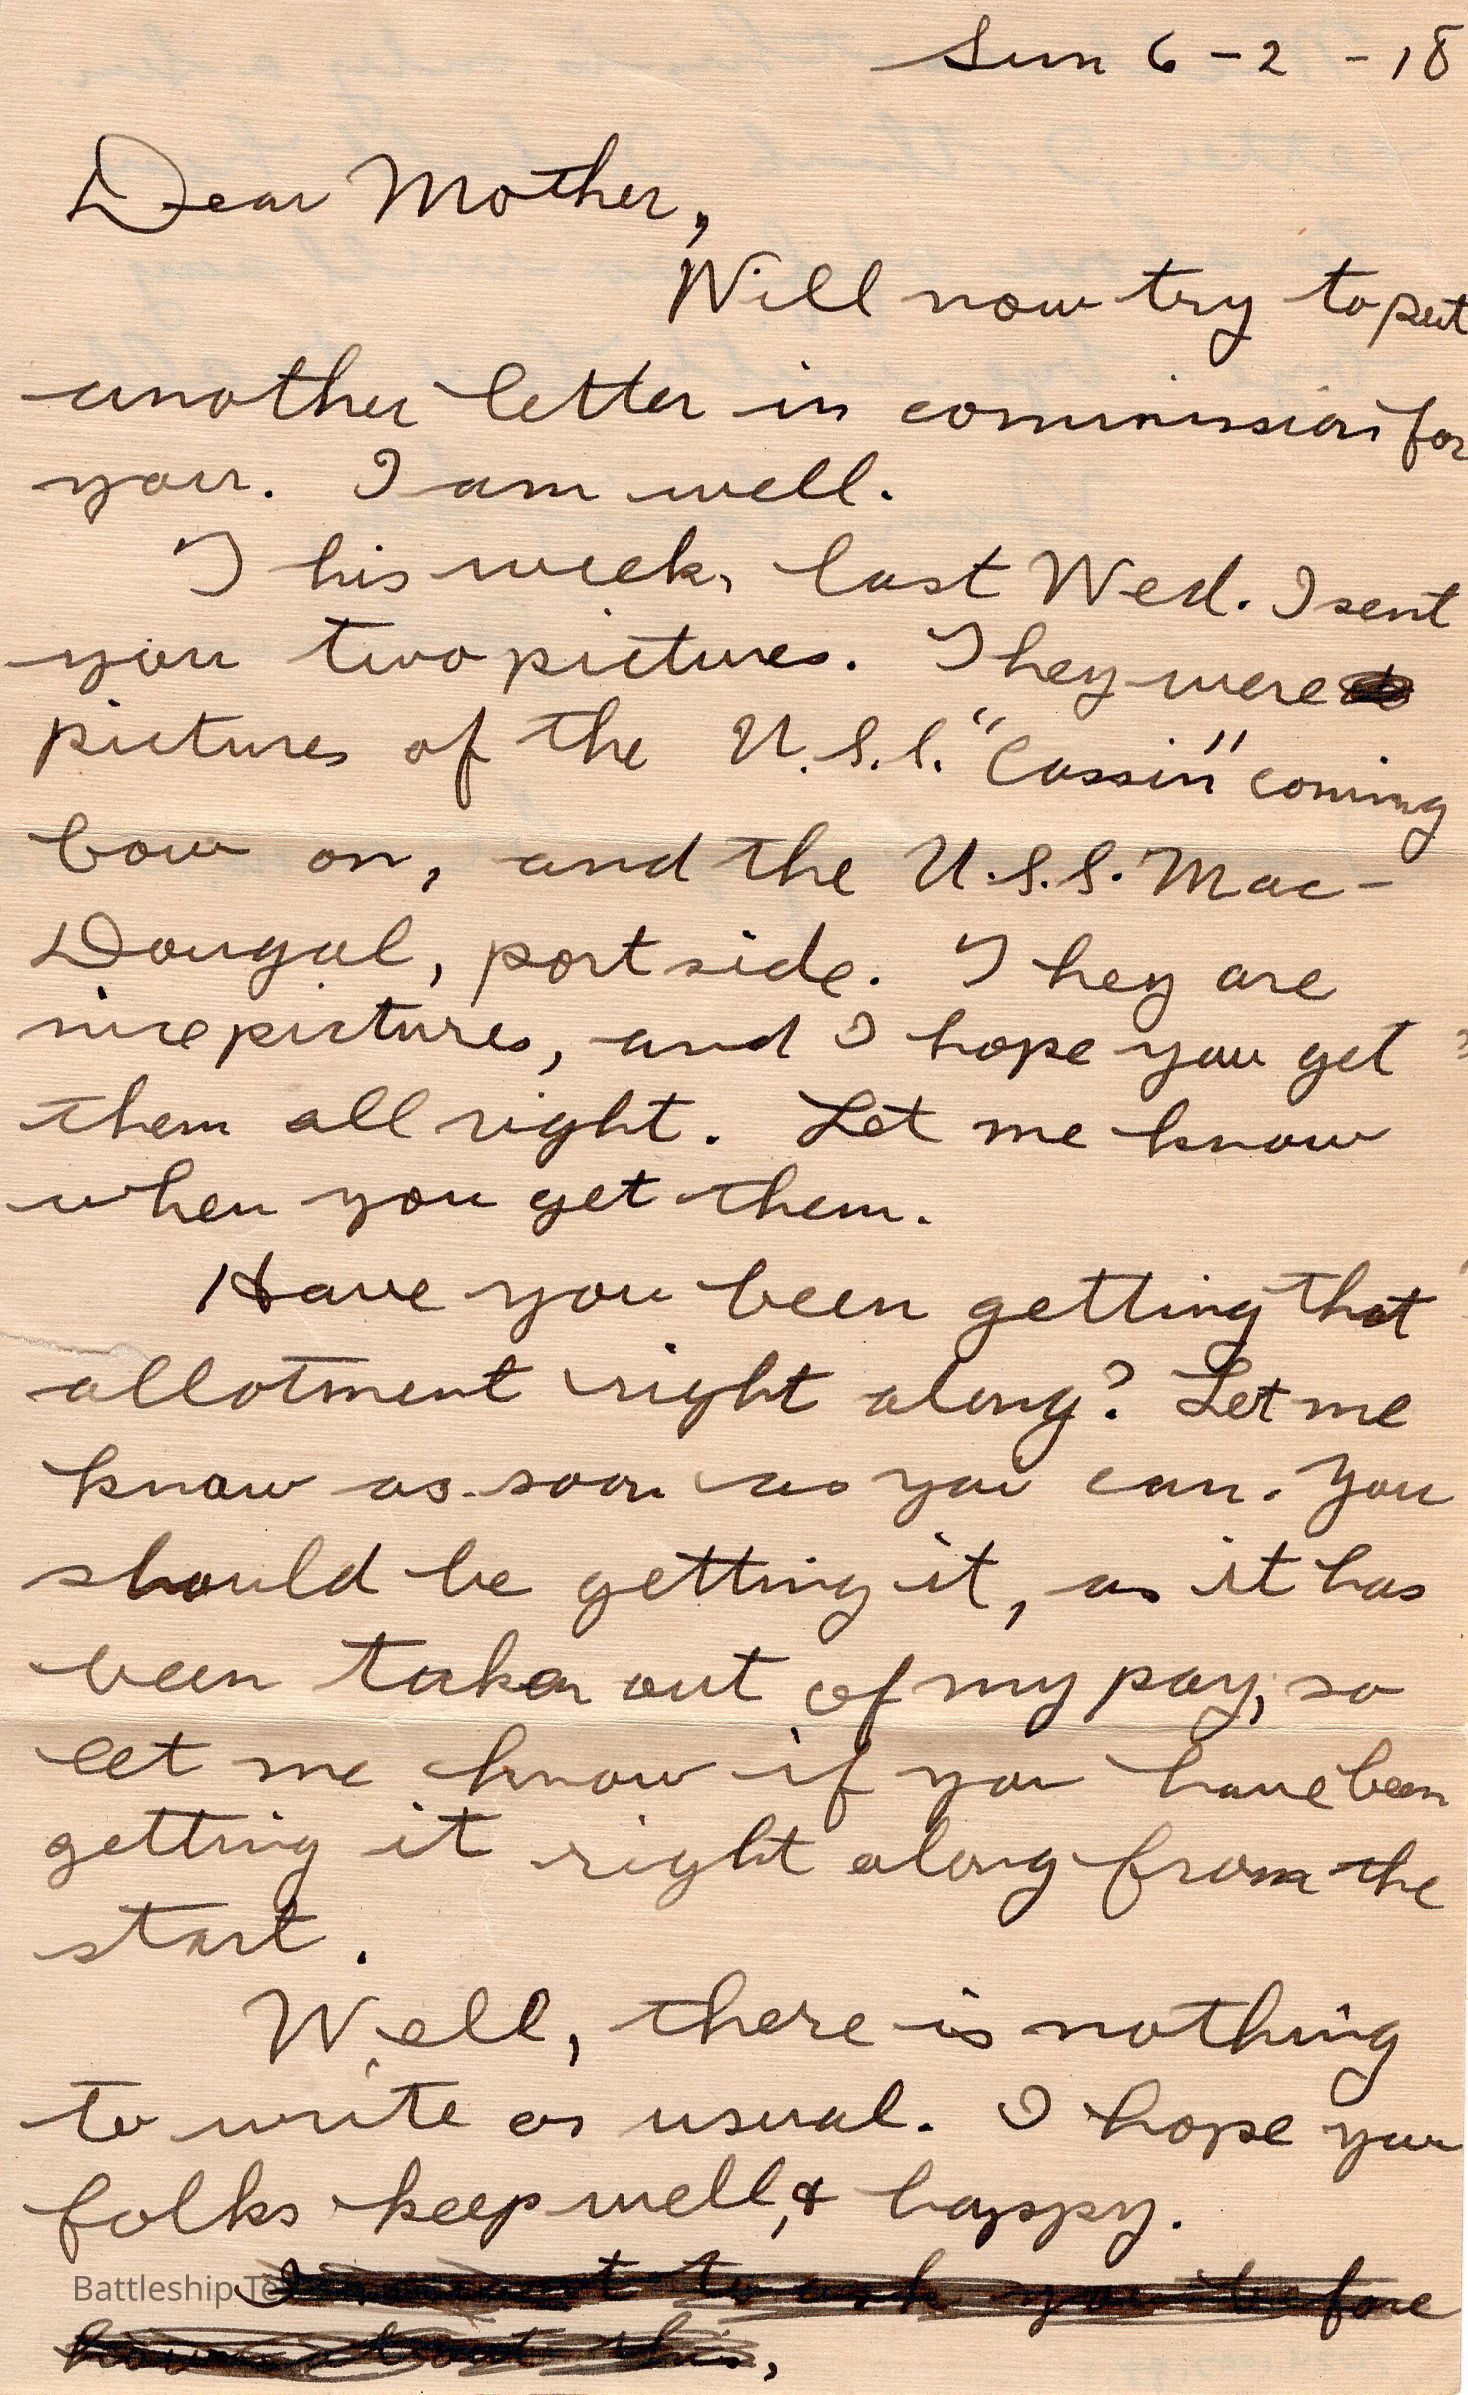 Sun 6-2-18
Dear Mother,
Will now try to put
another letter in commission for
you. I am well.
This week, last Wed. I sent
you two pictures. They were
pictures of the U.S.S. "Cassin" coming
bow on, and the U.S.S. Mac-
Dougal, port side. They are
nice pictures, and I hope you get
them all right. Let me know
when you get them.
Have you been getting that
allotment right along? Let me
know as soon as you can. You
should be getting it, as it has
been taken out of my pay, so
let me know if you have been
getting it right along from the
start.
Well, there is nothing
to write as usual. I hope you
folks keep well, & happy.
Battleship
to ask you before
how about this,